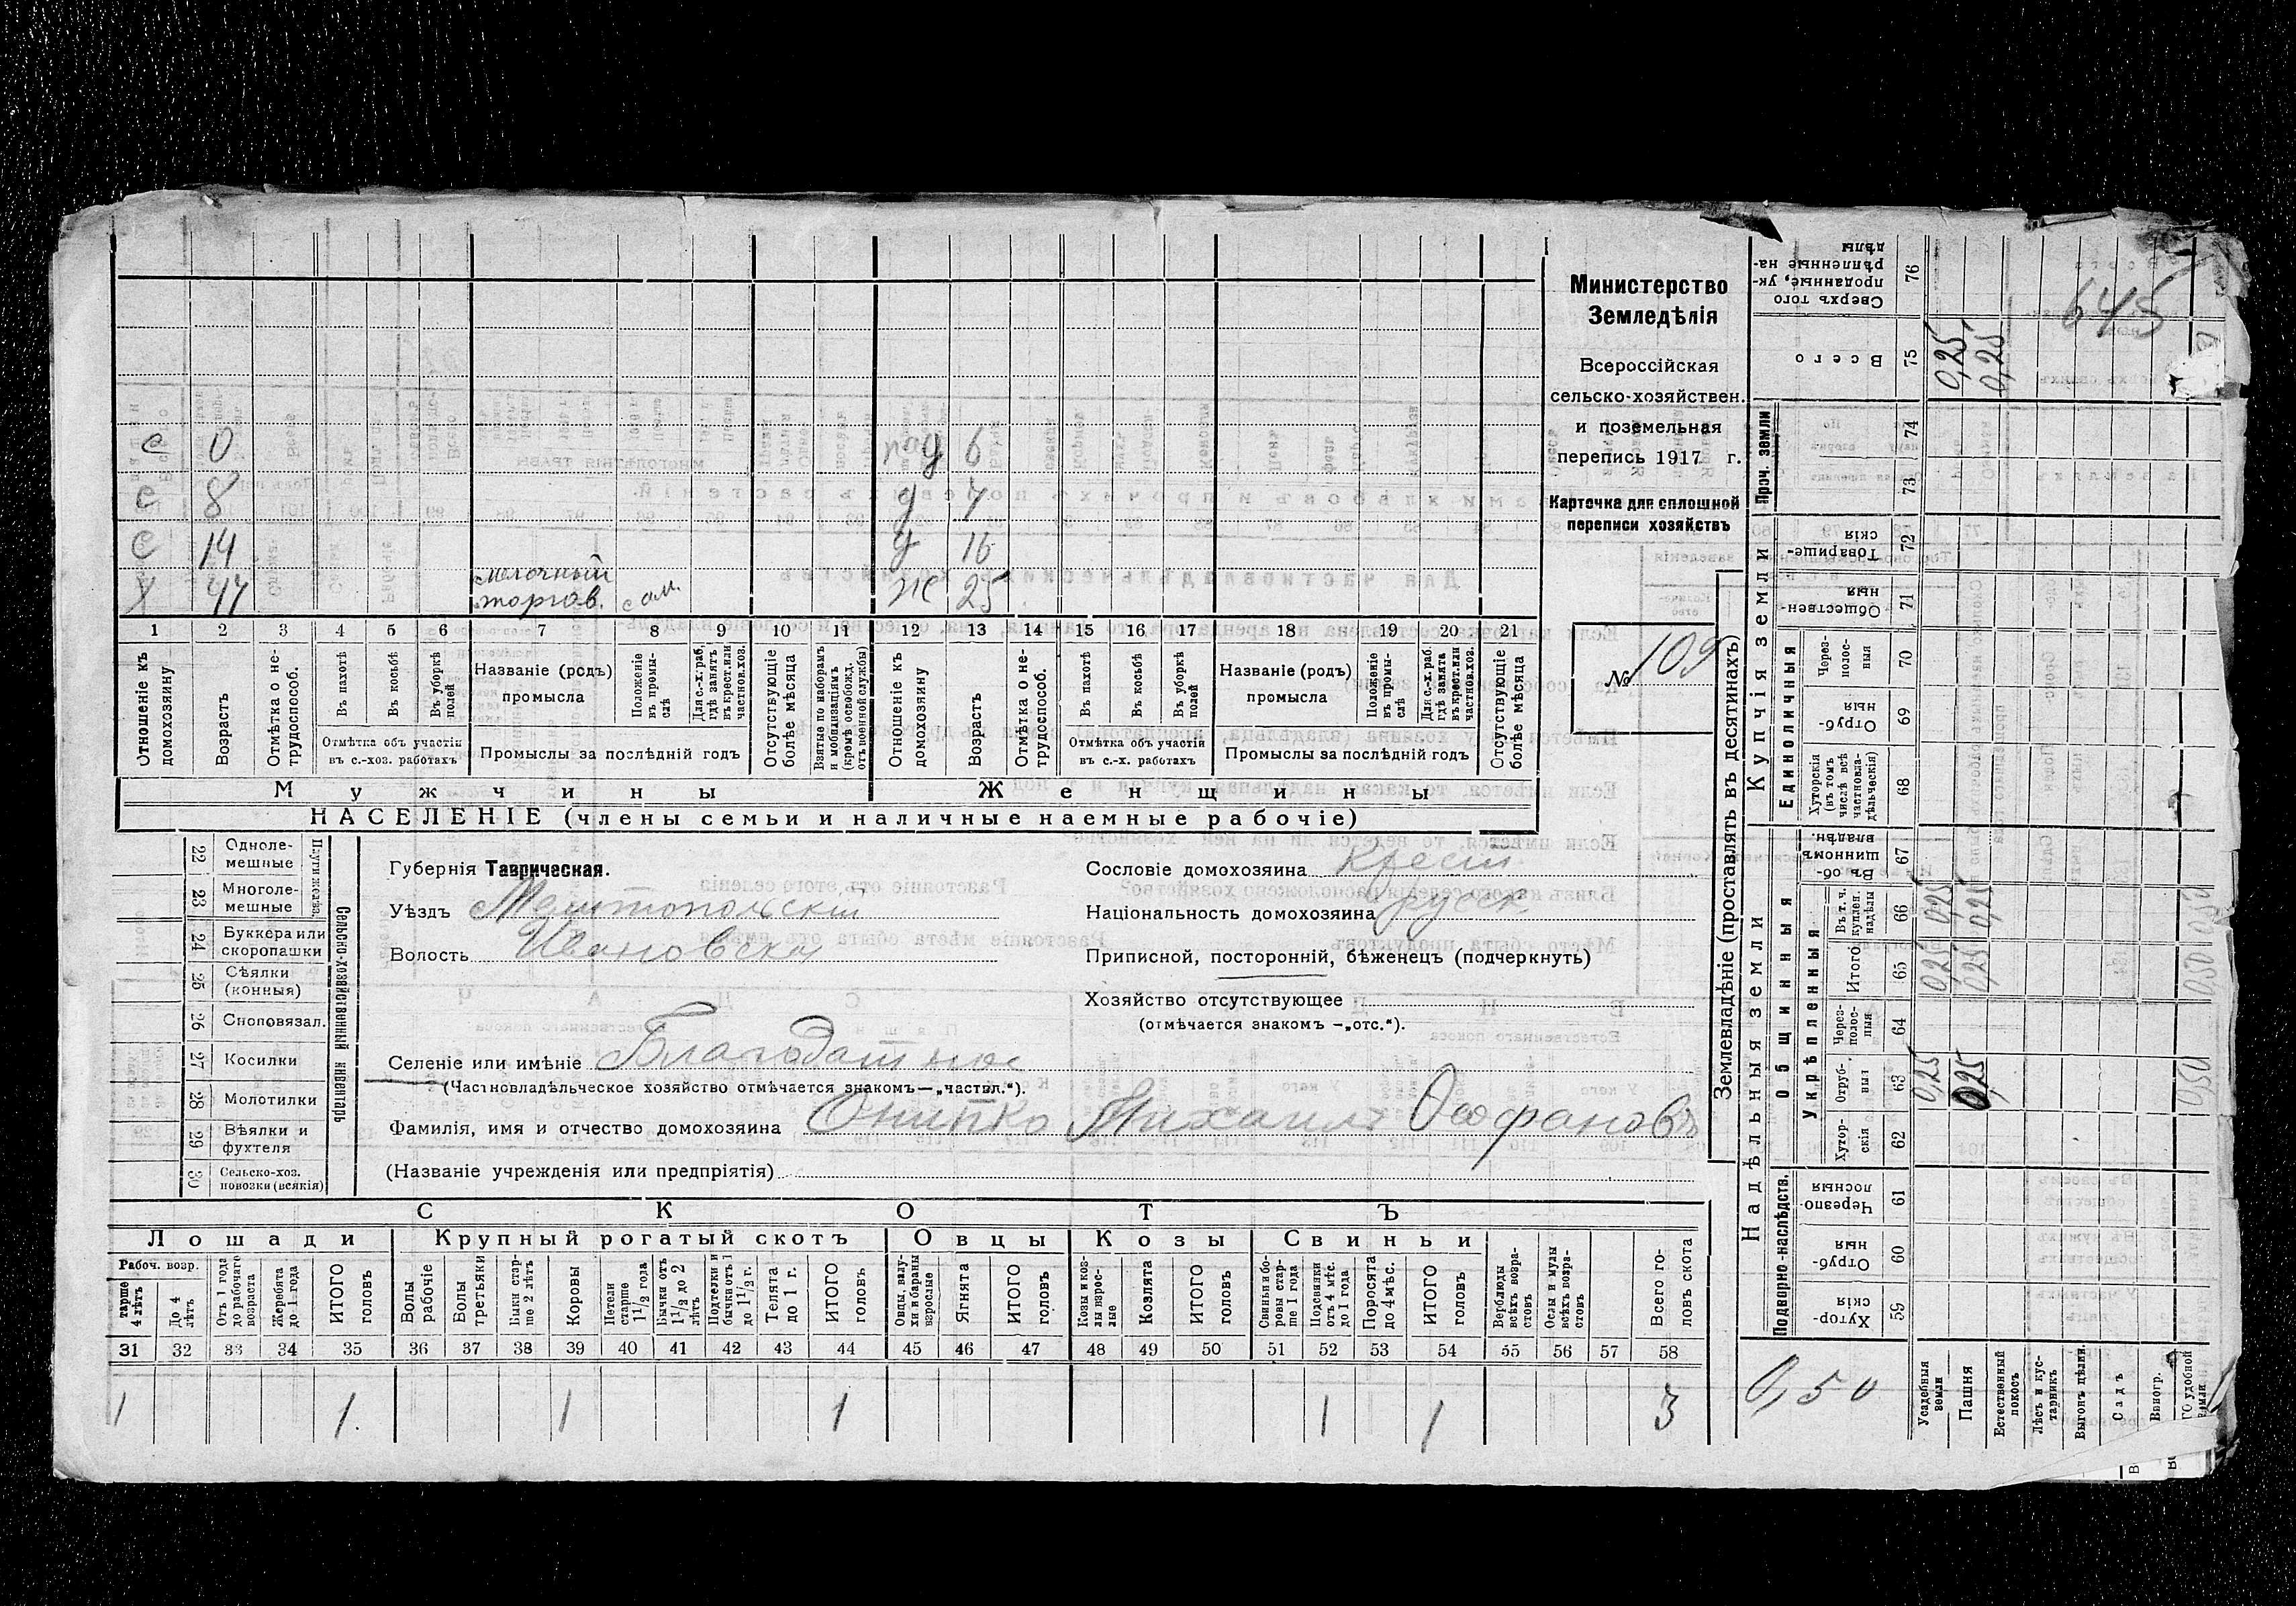 Министерство
Земледѣлія
Всероссійская
сельско-хозяйствен.
и поземельная
перепись 1917 г.
Карточка для сплошной
переписи хозяйствъ
№ 109
645
с 0 6
с 8 д 7
с 14 д 16
х 47 мелочный торгов. сам. ж 25
1 2 3 4 5 6 7 8 9 10 11 12 13 14 15 16 17 18 19 20 21
Отношеніе къ домохозяину
Возрастъ
Отмѣтка о не-трудоспособ.
Въ пахотѣ
Въ косьбѣ
Въ уборкѣ полей
Отмѣтка объ участіи въ с.-хоз. работахъ
Названіе (родъ) промысла
Положеніе въ промыслѣ
Для с.-х. раб. гдѣ занятъ въ крест. или частнов. хоз.
Промыслы за послѣдній годъ
Отсутствующіе болѣе мѣсяца
Взятые по наборамъ и мобилизаціямъ (кромѣ освобожд. отъ военной службы)
Отношеніе къ домохозяину
Возрастъ
Отмѣтка о не-трудоспособ.
Въ пахотѣ
Въ косьбѣ
Въ уборкѣ полей
Отмѣтка объ участіи въ с.-х. работахъ
Названіе (родъ) промысла
Положеніе въ промыслѣ
Для с.-х. раб. гдѣ занята въ крест. или частнов. хоз.
Промыслы за послѣдній годъ
Отсутствующіе болѣе мѣсяца
Мужчины Женщины
НАСЕЛЕНІЕ (члены семьи и наличные наемные рабочіе)
22 Однолемешные
23 Многолемешные
24 Буккера или скоропашки
25 Сѣялки (конныя)
26 Сноповязал.
27 Косилки
28 Молотилки
29 Вѣялки и фухтеля
30 Сельско-хоз. повозки (всякія)
Сельско-хозяйственный инвентарь
Губернія Таврическая.
Уѣздъ Мелитопольскій
Волость Ивановская
Селеніе или имѣніе Благодатное
(Частновладѣльческое хозяйство отмѣчается знакомъ—„частвл.“).
Фамилія, имя и отчество домохозяина Онипко Михаилъ Ѳеофановъ
(Названіе учрежденія или предпріятія)
Сословіе домохозяина крест.
Національность домохозяина русск.
Приписной, посторонній, бѣженецъ (подчеркнуть)
Хозяйство отсутствующее
(отмѣчается знакомъ —„отс.“).
СКОТЪ
Лошади Крупный рогатый скотъ Овцы Козы Свиньи
Рабоч. возр.
старше 4 лѣтъ
До 4 лѣтъ
Отъ 1 года до рабочаго возраста
Жеребята до 1 года
ИТОГО головъ
Волы рабочіе
Волы третьяки
Быки старше 2 лѣтъ
Коровы
Нетели старше 1 1/2 года
Бычки отъ 1 1/2 до 2 лѣтъ
Подтелки и бычки отъ 1 до 1 1/2 г.
Телята до 1 г.
ИТОГО головъ
Овцы, валухи и бараны взрослые
Ягнята
ИТОГО головъ
Козы и козлы взрослые
Козлята
ИТОГО головъ
Свиньи и боровы старше 1 года
Подсвинки отъ 4 мѣс. до 1 года
Поросята до 4 мѣс.
ИТОГО головъ
Верблюды всѣхъ возрастовъ
Ослы и мулы всѣхъ возрастовъ
Всего головъ скота
31 32 33 34 35 36 37 38 39 40 41 42 43 44 45 46 47 48 49 50 51 52 53 54 55 56 57 58
1 1 1 1 1 1 3
Землевладѣніе (проставлять въ десятинахъ)
Надѣльныя земли Купчія земли
Подворно-наслѣдств. Общинныя Единоличныя Проч. земли
Укрѣпленныя
Хуторскія 59
Отрубныя 60
Черезполосныя 61
Хуторскія 62
Отрубныя 63 0,25 0,25 0,50
Черезполосныя 64
Итого 65 0,25 0,25 0,50
Въ т. ч. куплен. надѣлы 66 0,25 0,25 0,50
Въ общинномъ владѣн. 67
Хуторскія (въ томъ числѣ всѣ частновладѣльческія) 68
Отрубныя 69
Черезполосныя 70
Общественныя 71
Товарищескія 72
73
74
Всего 75 0,25 0,25
Сверхъ того проданные, укрѣпленные надѣлы 76
0,50
Усадебныя земли
Пашня
Естественный покосъ
Лѣсъ и кустарникъ
Выгонъ цѣлин.
Садъ
Виногр.